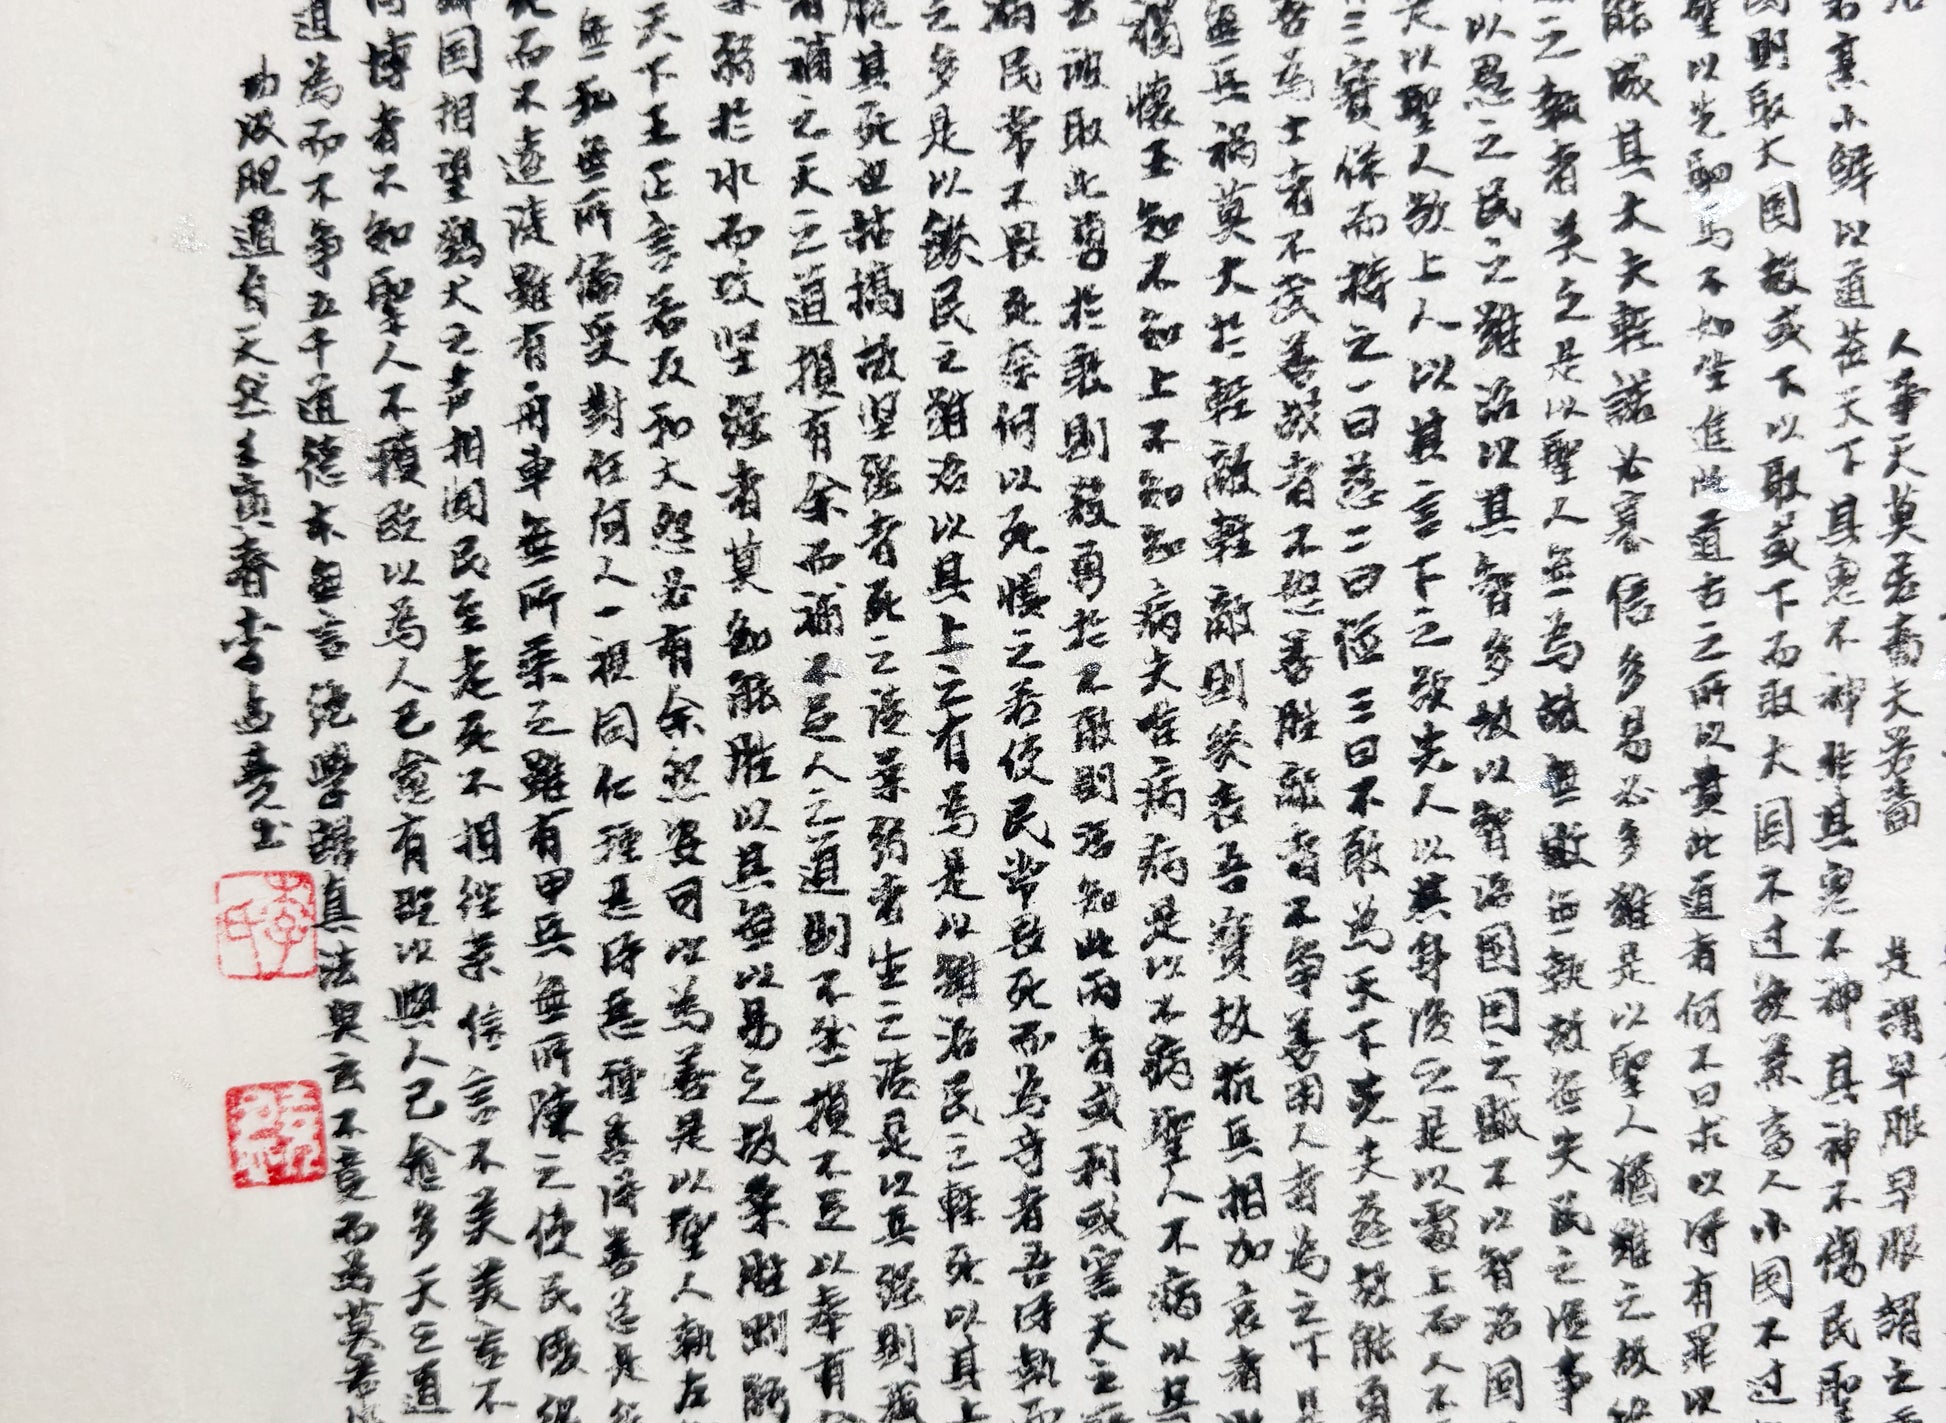 人事天莫若嗇夫若嗇 是謂早服早服謂之
若烹小鮮以道莅天下其鬼不神非其鬼不神其神不傷民聖
國則取大国故或下以取或下而取大国不过欲兼畜人小国不过
璧以先駟馬不如坐進此道古之所以貴此道者何不曰求以得有罪以
能成其大夫輕諾必寡信多易必多難是以聖人猶難之故終
之執者失之是以聖人無為故無敗無執故無失民之從事
以愚之民之難治以其智多故以智治國国之賊不以智治国
是以聖人欲上人以其言下之欲先人以其身後之是以處上而人不
三寶保而持之一曰慈二曰儉三曰不敢為天下先夫慈故能勇
善為士者不武善战者不怒善胜敵者不争善用人者為之下是
無兵禍莫大於輕敵輕敵則幾喪吾寶故抗兵相加哀者
褐懷玉知不知上不知知病夫唯病病是以不病聖人不病以其
去彼取此勇於敢則殺勇於不敢則活知此两者或利或害天之
病民常不畏死奈何以死懼之若使民常畏死而為奇者吾得執而
之多是以饑民之難治以其上之有為是以難治民之輕死以其上
脆其死也枯槁故坚强者死之徒柔弱者生之徒是以兵强則滅
者補之天之道損有余而補不足人之道則不然損不足以奉有
柔弱於水而攻坚强者莫知能胜以其無以易之故柔胜剛弱
天下王正言若反和大怨必有余怨安可以為善是以聖人執左
無私無所偏愛對任何人一視同仁種善得善是
死而不遠徙雖有舟車無所乘之雖有甲兵無所陳之使民復結
鄰国相望鷄犬之声相闻民至老死不相往来信言不美美言不
博者不知聖人不積既以為人己愈有既以與人己愈多天之道
道為而不争五千道德本無言絕學歸真法奥玄不而為莫若
功成道自天然壬寅春李志亮书
李氏
志亮